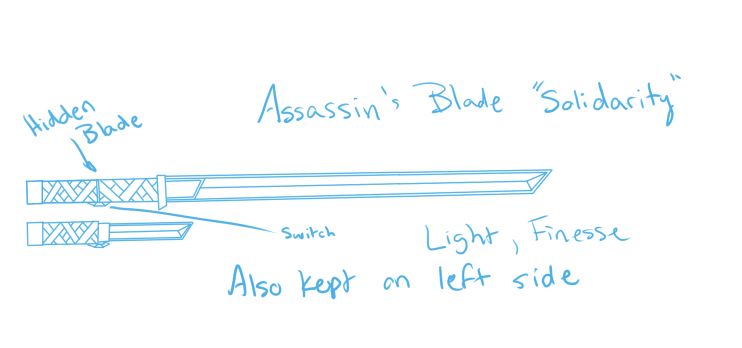 Assassin's Blade "Solidarity"
Hidden
Blade
Switch
Light, Finesse
Also kept on left side